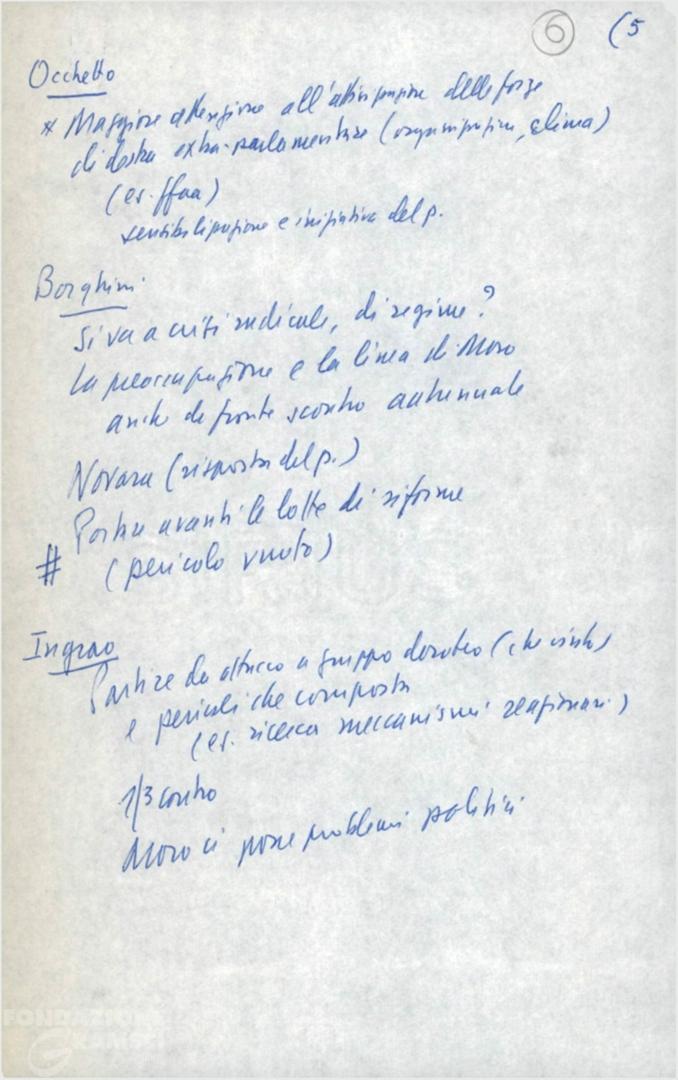 6 (5
Occhetto
* Maggiore attenzione all'attivizzazione delle forze
di destra extra-parlamentare (organizzazione, clima)
(es. ffaa)
sensibilizzazione e iniziativa del p.
Borghini
Si va a crisi radicale, di regime?
La preoccupazione e la linea di Moro
anche di fronte scontro autunnale
Novara (risposta del p.)
Portare avanti le lotte di riforme
# (pericolo vuoto)
Ingrao
Partire da attacco a gruppo doroteo (che vinto)
e pericoli che comporta
(es. ricerca meccanismi reazionari)
1/3 contro
Moro ci pone problemi politici
FONDAZIONE
GRAMSCI